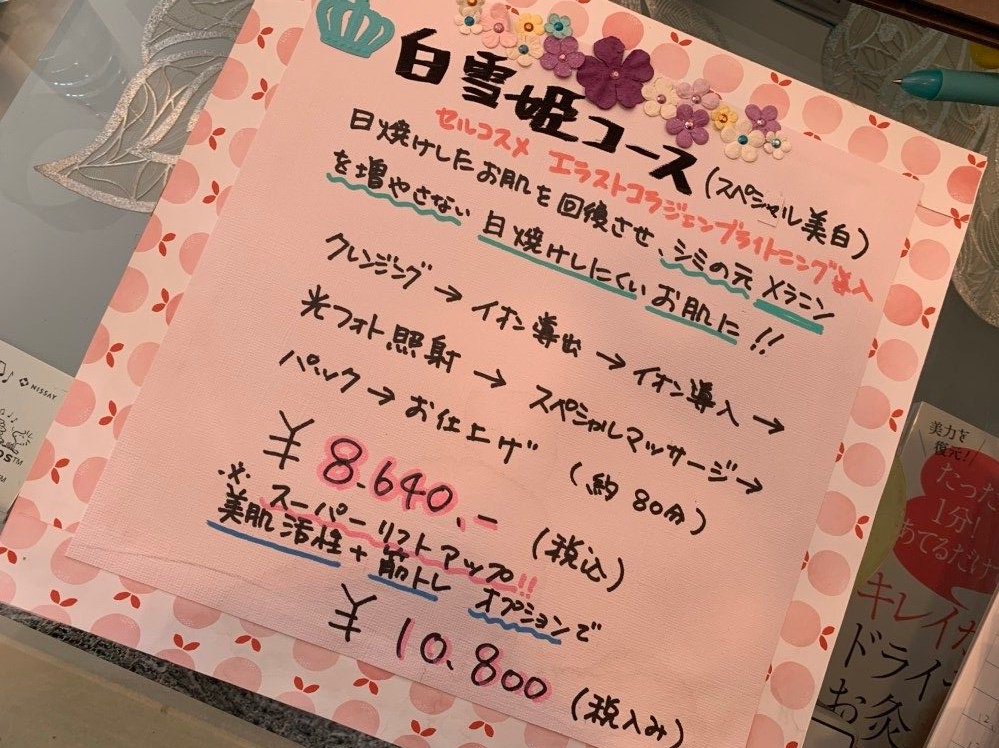 白雪姫コース(スペシャル美白)
セルコスメ エラストコラジェンブライトニング導入
日焼けしたお肌を回復させ、シミの元メラニン
を増やさない 日焼けしにくいお肌に!!
クレンジング→イオン導出→イオン導入→
光フォト照射→スペシャルマッサージ→
パック→お仕上げ (約80分)
¥8.640.- (税込)
※スーパーリフトアップ!!
美肌活性+筋トレ オプションで
¥10.800 (税込み)
NISSAY
美力を
復元!
たった
1分!
あてるだけ
キレイ
ドライ
お灸